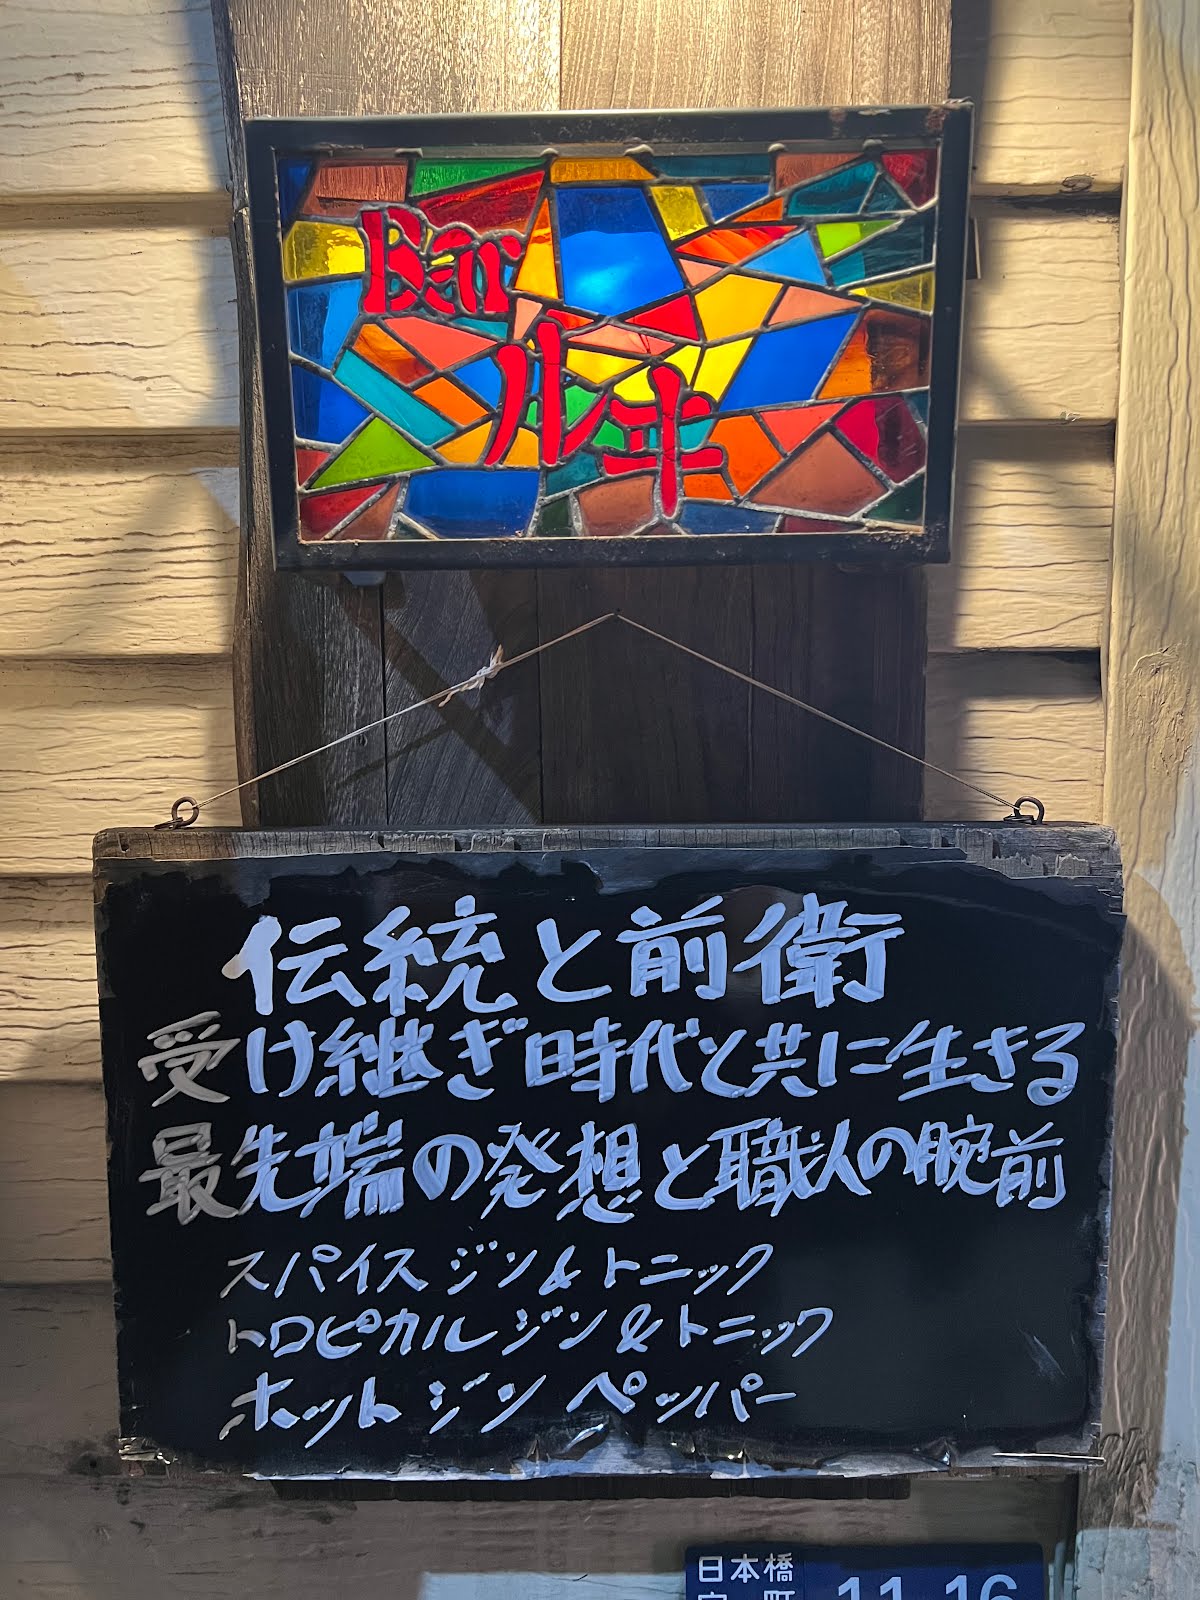 Bar
ルヰ
伝統と前衛
受け継ぎ時代と共に生きる
最先端の発想と職人の腕前
スパイス ジン&トニック
トロピカル ジン&トニック
ホット ジン ペッパー
日本橋
11-16